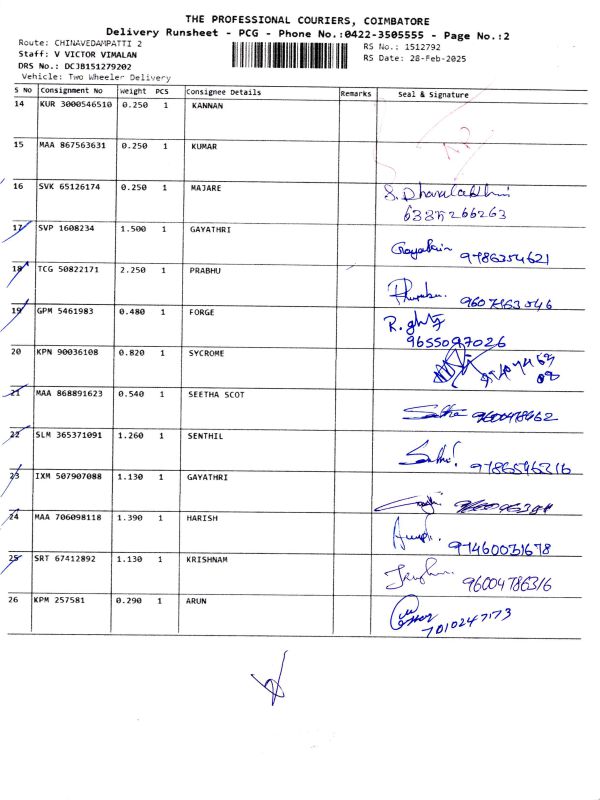 THE PROFESSIONAL COURIERS, COIMBATORE
Delivery Runsheet - PCG - Phone No.:0422-3505555 - Page No.:2
Route: CHINAVEDAMPATTI 2 RS No.: 1512792
Staff: V VICTOR VIMALAN RS Date: 28-Feb-2025
DRS No.: DCJB151279202
Vehicle: Two Wheeler Delivery
S No Consignment No Weight PCS Consignee Details Remarks Seal & Signature
14 KUR 3000546510 0.250 1 KANNAN
15 MAA 867563631 0.250 1 KUMAR
16 SVK 65126174 0.250 1 MAJARE
17 SVP 1608234 1.500 1 GAYATHRI 9786354621
18 TCG 50822171 2.250 1 PRABHU
19 GPM 5461983 0.480 1 FORGE
9655097026
20 KPN 90036108 0.820 1 SYCROME
21 MAA 868891623 0.540 1 SEETHA SCOT
22 SLM 365371091 1.260 1 SENTHIL 9786546316
23 IXM 507907088 1.130 1 GAYATHRI
24 MAA 706098118 1.390 1 HARISH
25 SRT 67412892 1.130 1 KRISHNAM 96004786316
26 KPM 257581 0.290 1 ARUN
7010247173